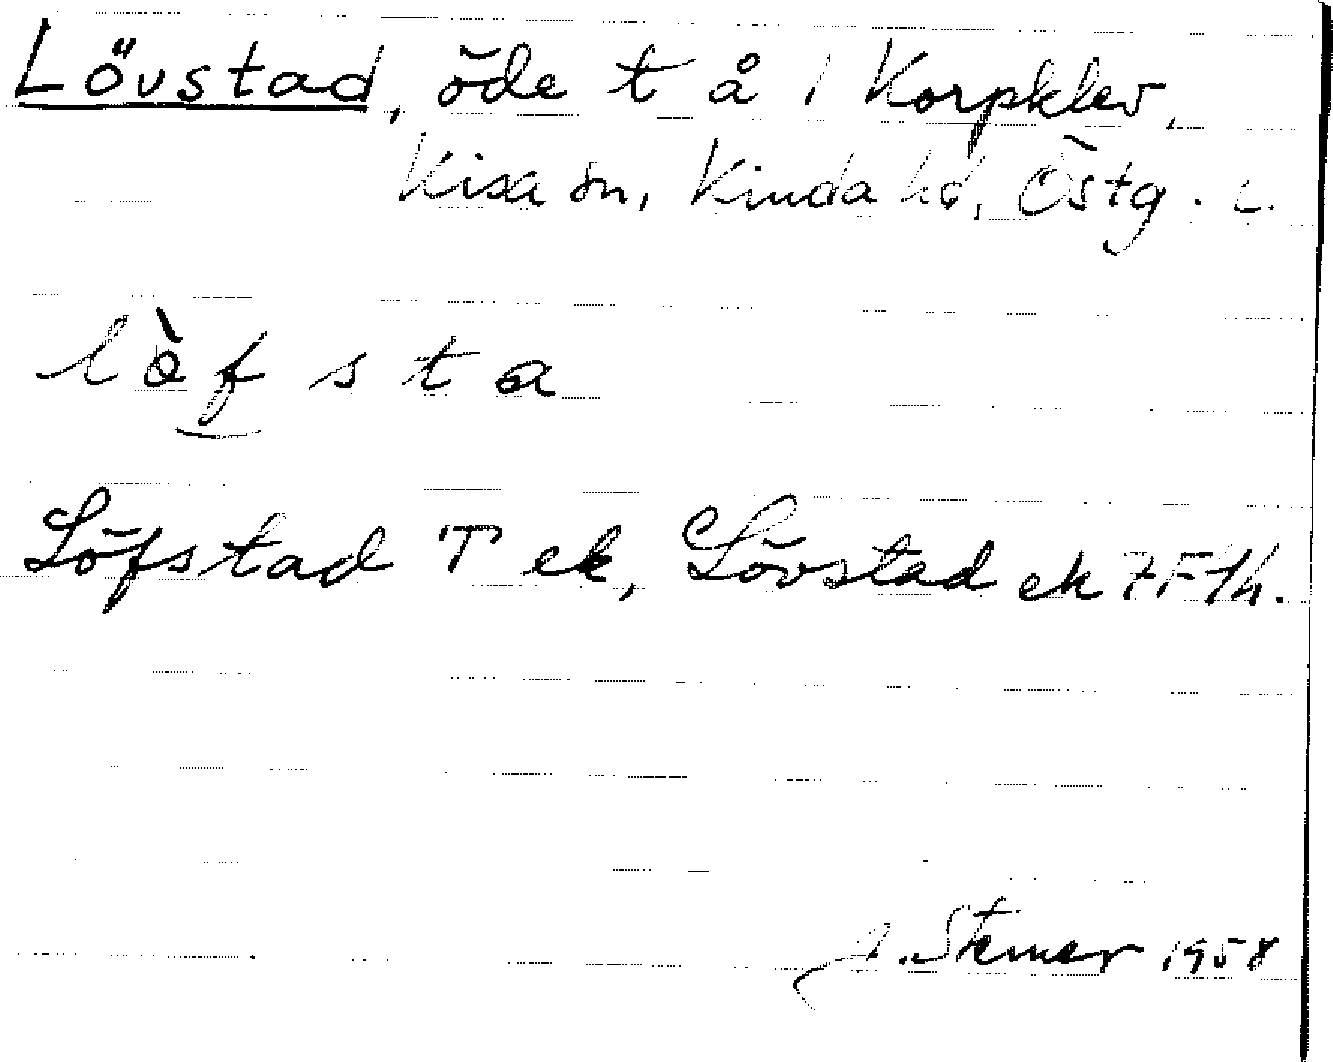 Lövstad, öde t å 1 Korpklev,
Kisa sn, Kinda hd, Östg. l.
lòf sta
Löfstad T ek, Lövstad ek 7F1h.
1958